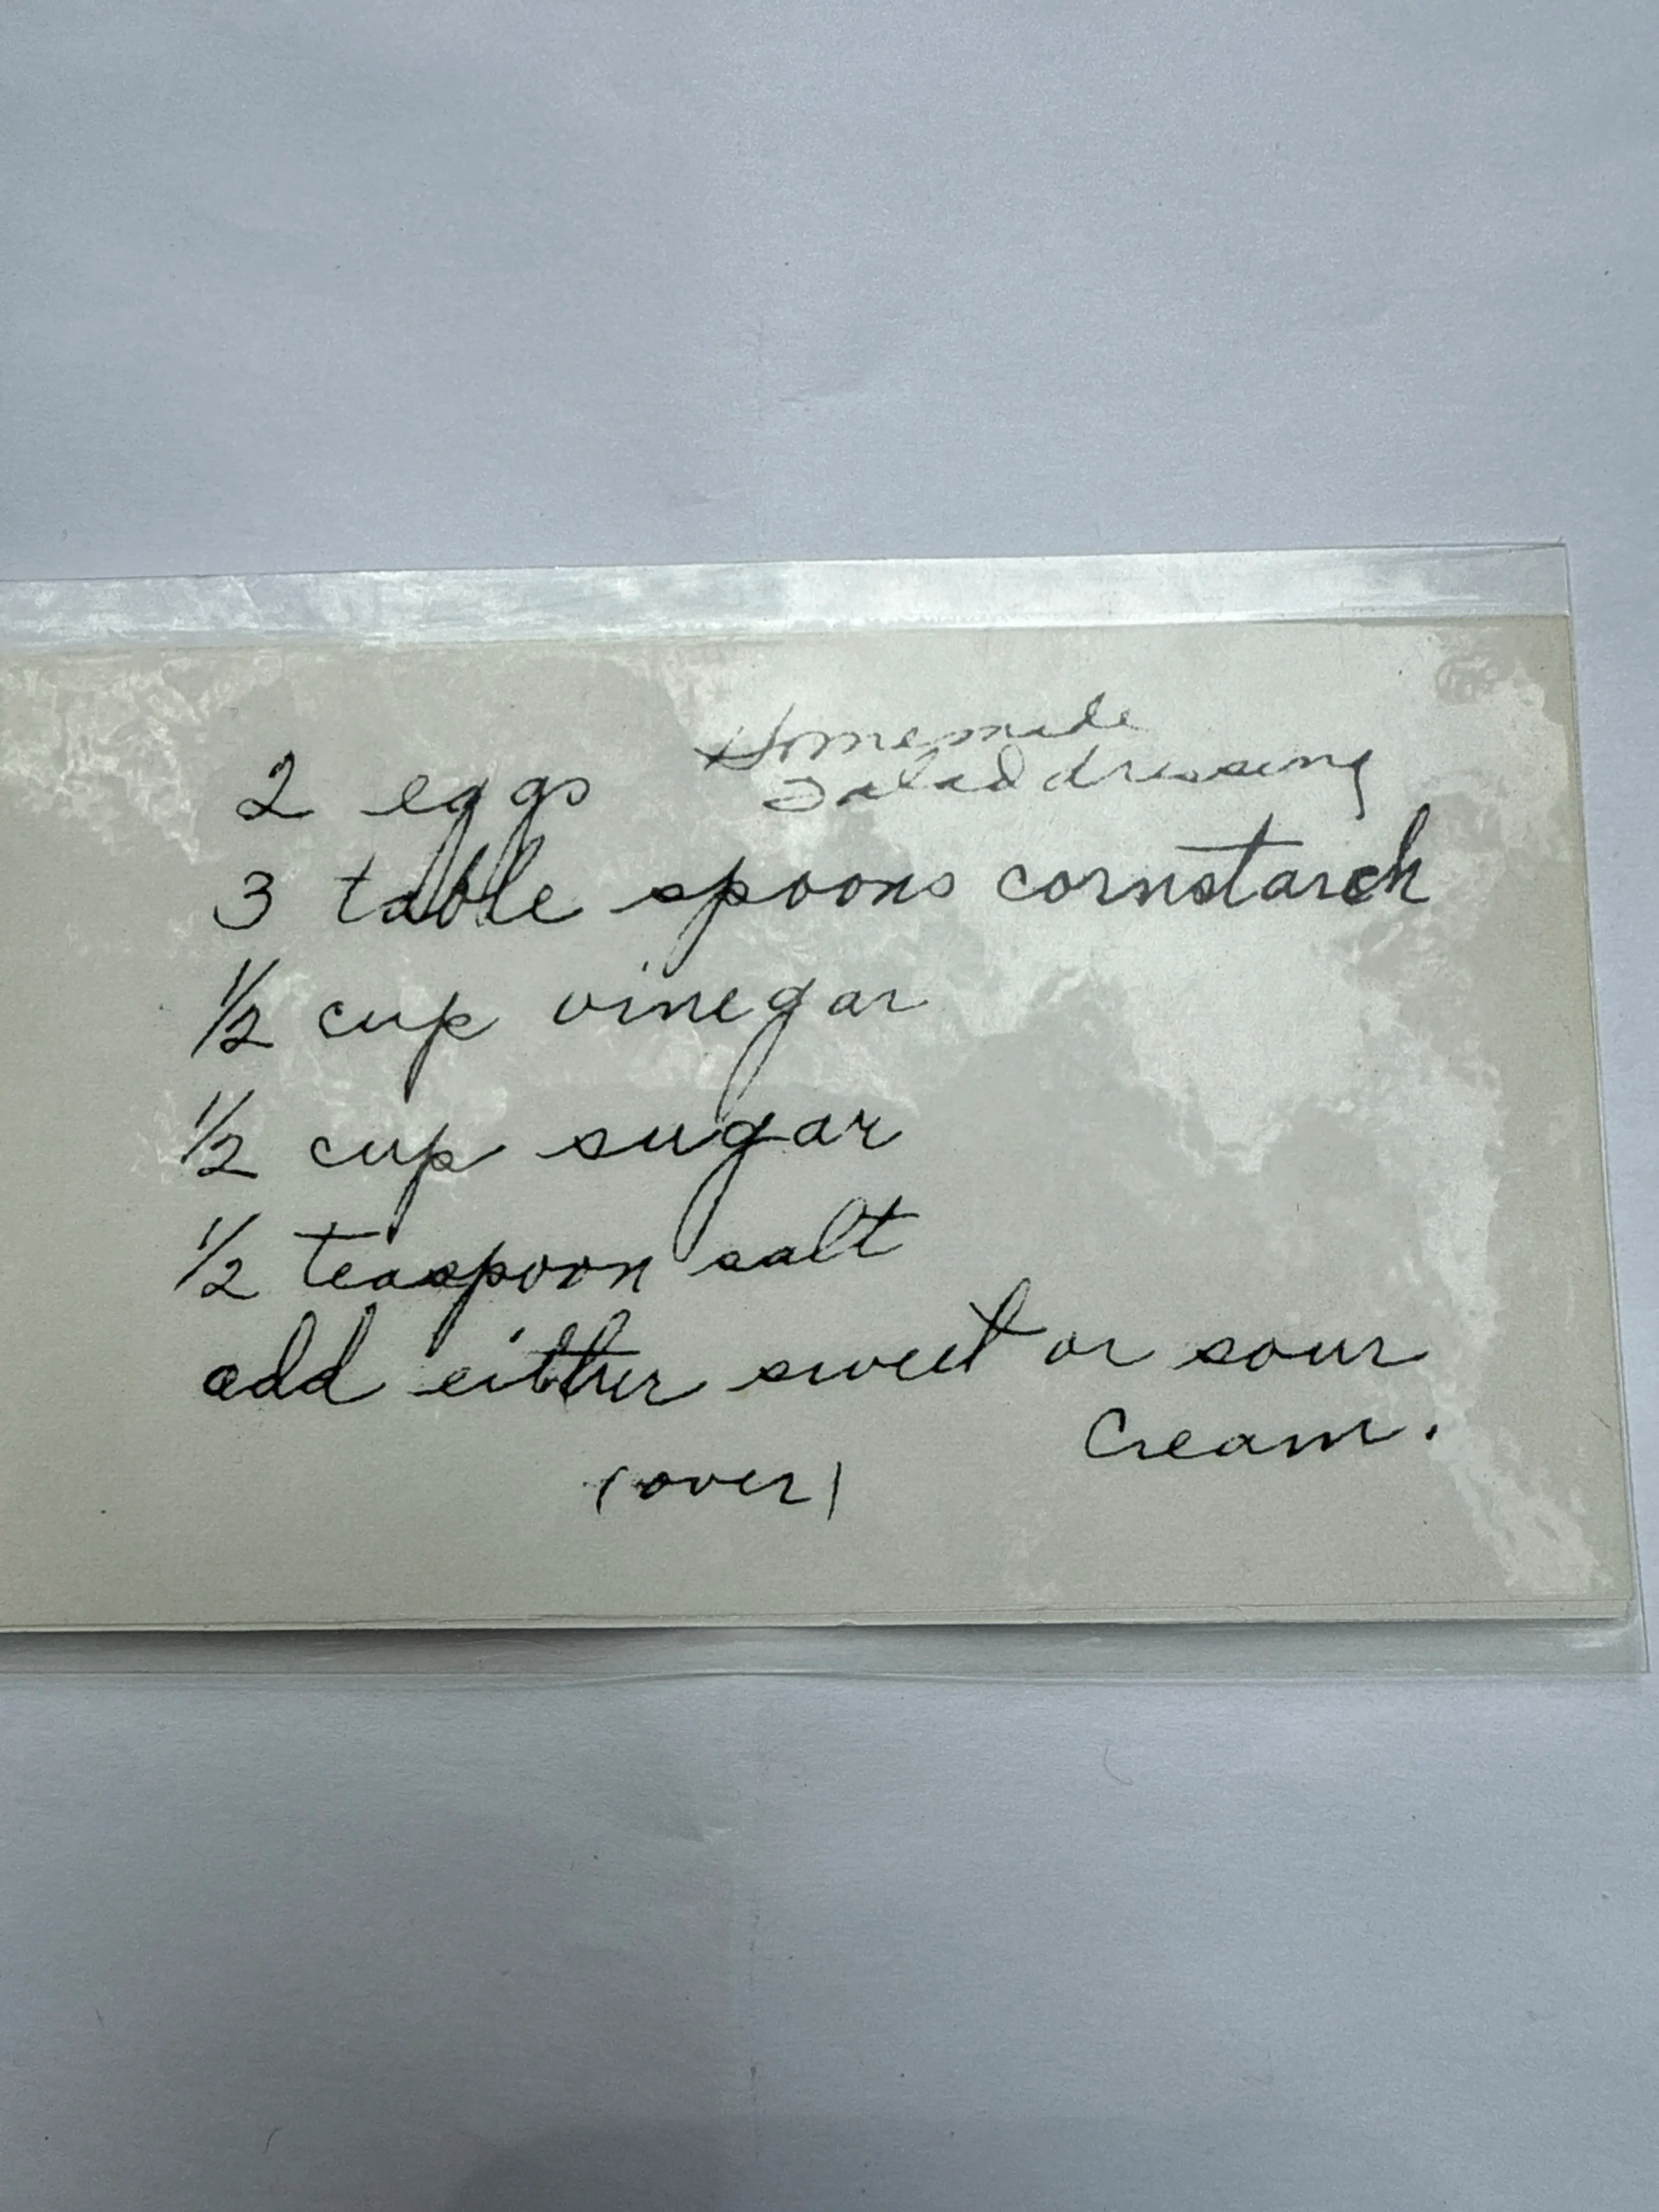 Homemade
Salad dressing
2 eggs
3 table spoons cornstarch
1/2 cup vinegar
1/2 cup sugar
1/2 teaspoon salt
add either sweet or sour
Cream.
(over)